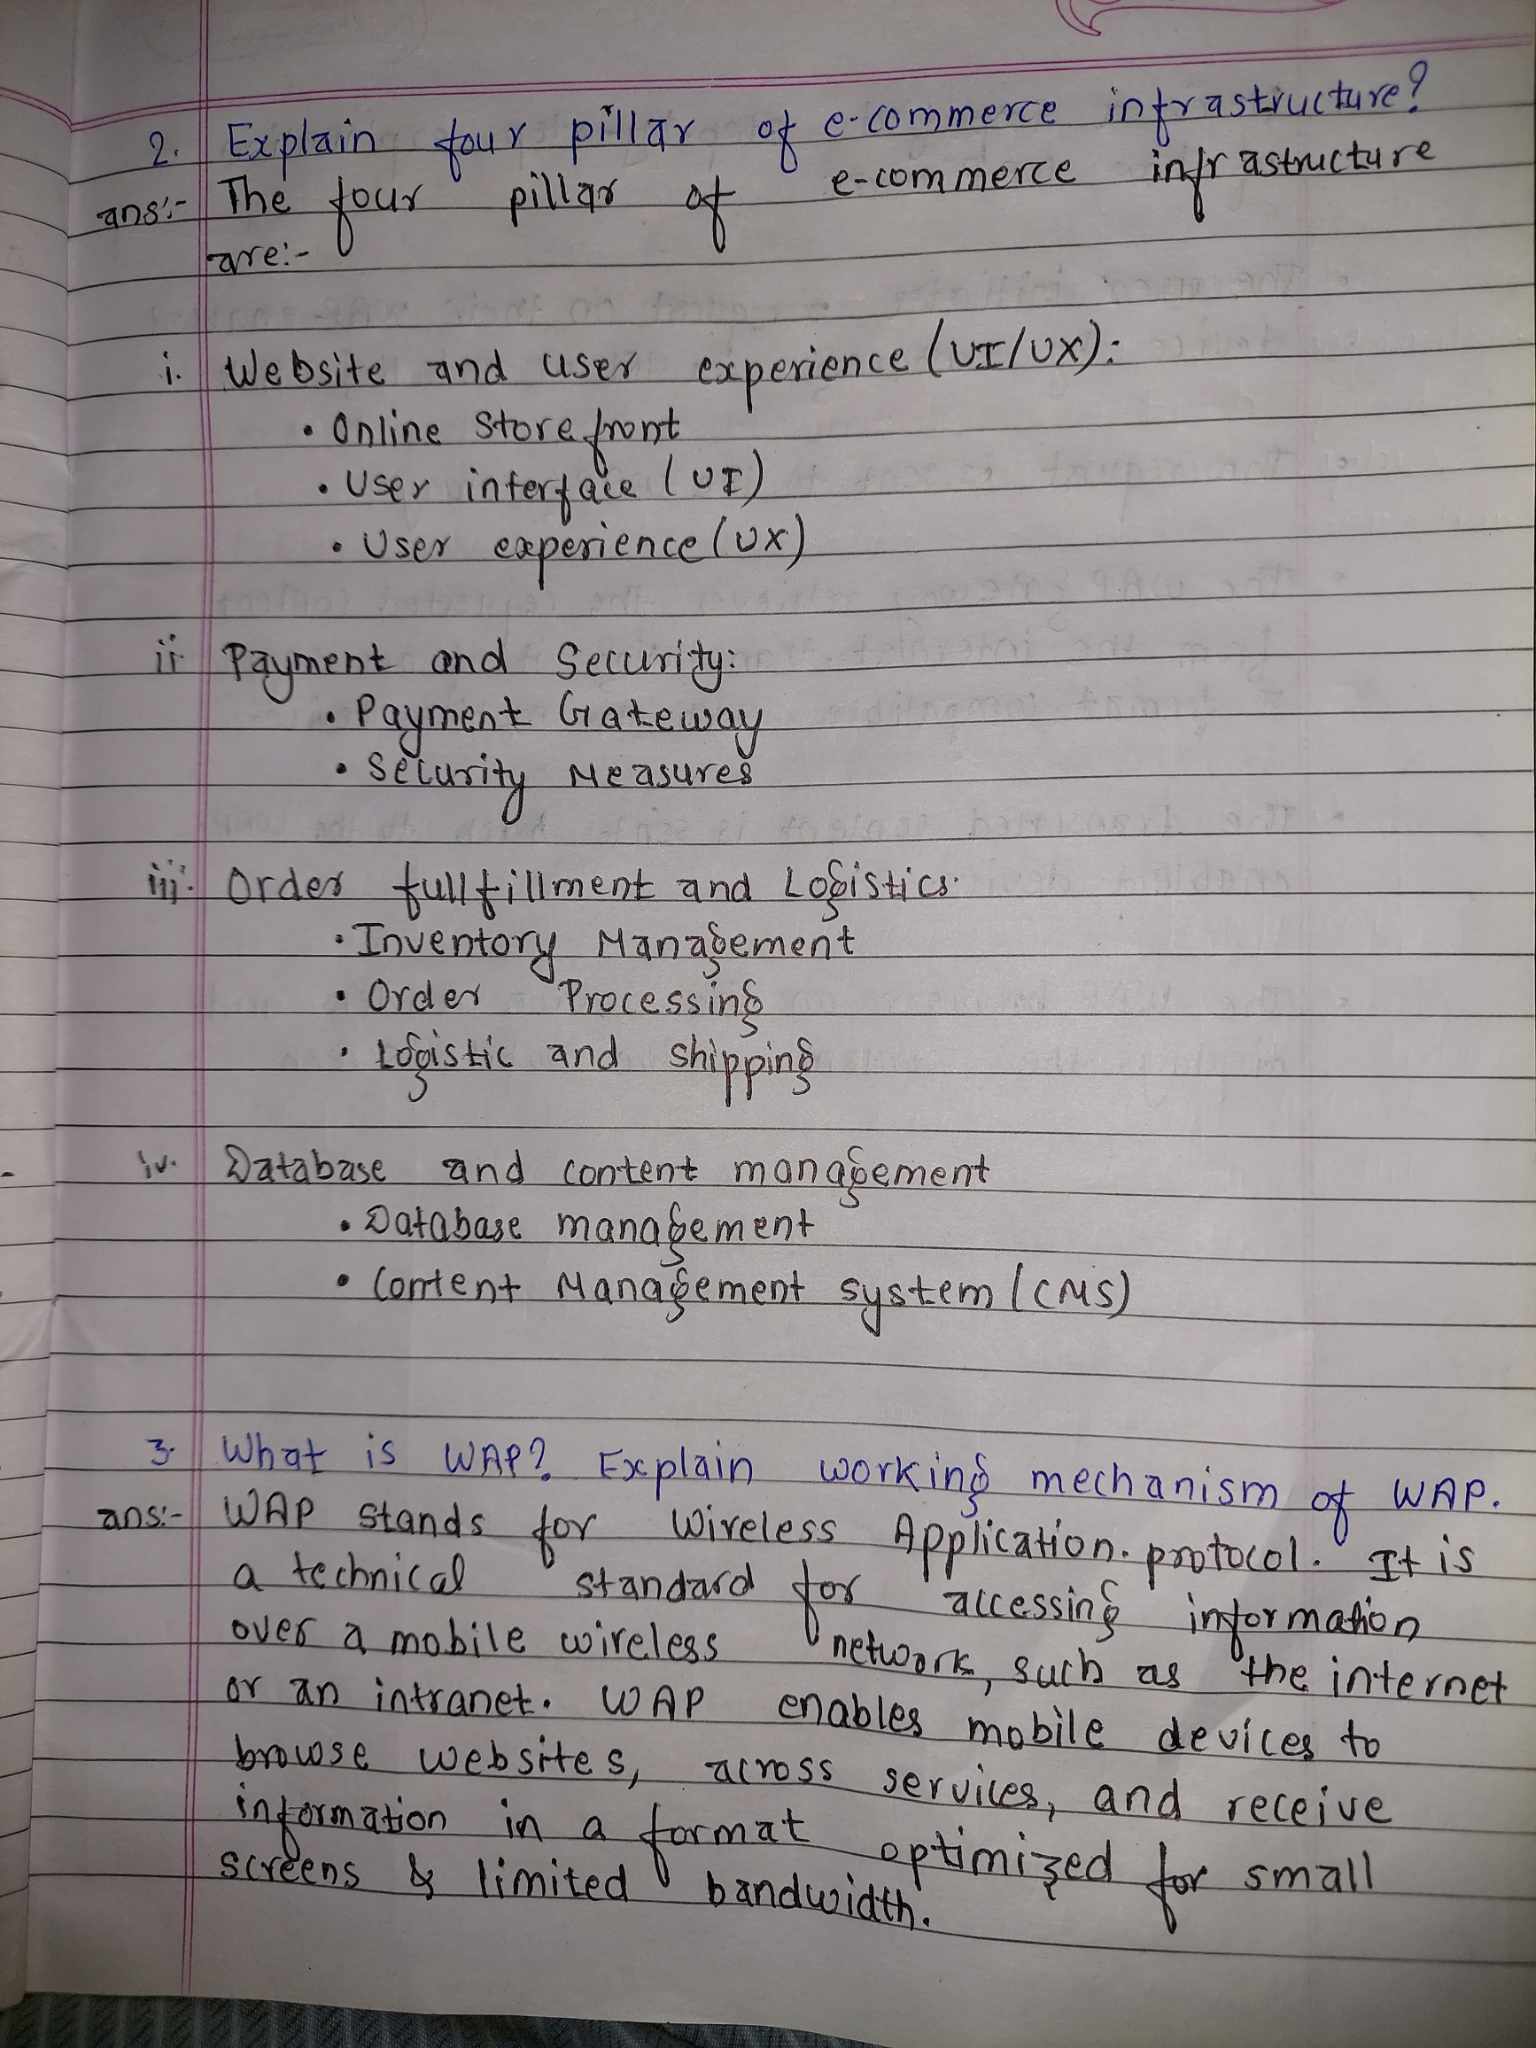 2. Explain four pillar of e-commerce infrastructure?
ans:- The four pillar of e-commerce infrastructure
are:-
i. Website and user experience (UI/UX):
• Online Store front
• User interface (UI)
• User experience (UX)
ii Payment and Security:
• Payment Gateway
• Security Measures
iii. Order fullfillment and Logistics.
• Inventory Management
• Order Processing
• Logistic and shipping
iv. Database and content management
• Database management
• Content Management system (CMS)
3. What is WAP? Explain working mechanism of WAP.
ans:- WAP stands for Wireless Application. protocol. It is
a technical standard for accessing information
over a mobile wireless network, such as the internet
or an intranet. WAP enables mobile devices to
browse websites, across services, and receive
information in a format optimized for small
screens & limited bandwidth.